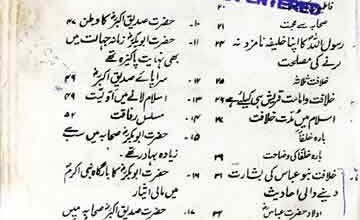 ENTERED
۲۰
صحابہ سے محبت ۲۱
رسول اللہؐ کا اپنا خلیفہ نامزد نہ ۲۳
کرنے کی مصلحت
خلافت ثلاثہ ۲۵
خلافت و امامت قریش ہی کیلئے ہے ۲۶
اسلام میں مدت خلافت ۲۶
بارہ خلفاء
بارہ خلفا کی وضاحت ۲۹
خلافت بنو عباس کی بشارت ۳۱
دینے والی احادیث
اولاد حضرت عباسؓ
۱۰- حضرت صدیق اکبرؓ کا وطن ۴۷
۱۱- حضرت ابوبکرؓ زمانہ جہالت میں
بھی نہایت پاکیزہ تھے
۱۲- سراپائے صدیق اکبرؓ ۴۹
۱۳- اسلام لانے میں اولیت ۴۹
۱۴- مسلسل رفاقت ۵۲
۱۵- حضرت ابوبکرؓ صحابہ میں سب سے
زیادہ بہادر تھے۔
۱۶- حضرت ابوبکرؓ کا بارگاہ نبی اکرمؐ
میں مالی ایثار
۱۷- حضرت صدیق اکبرؓ صحابہ میں